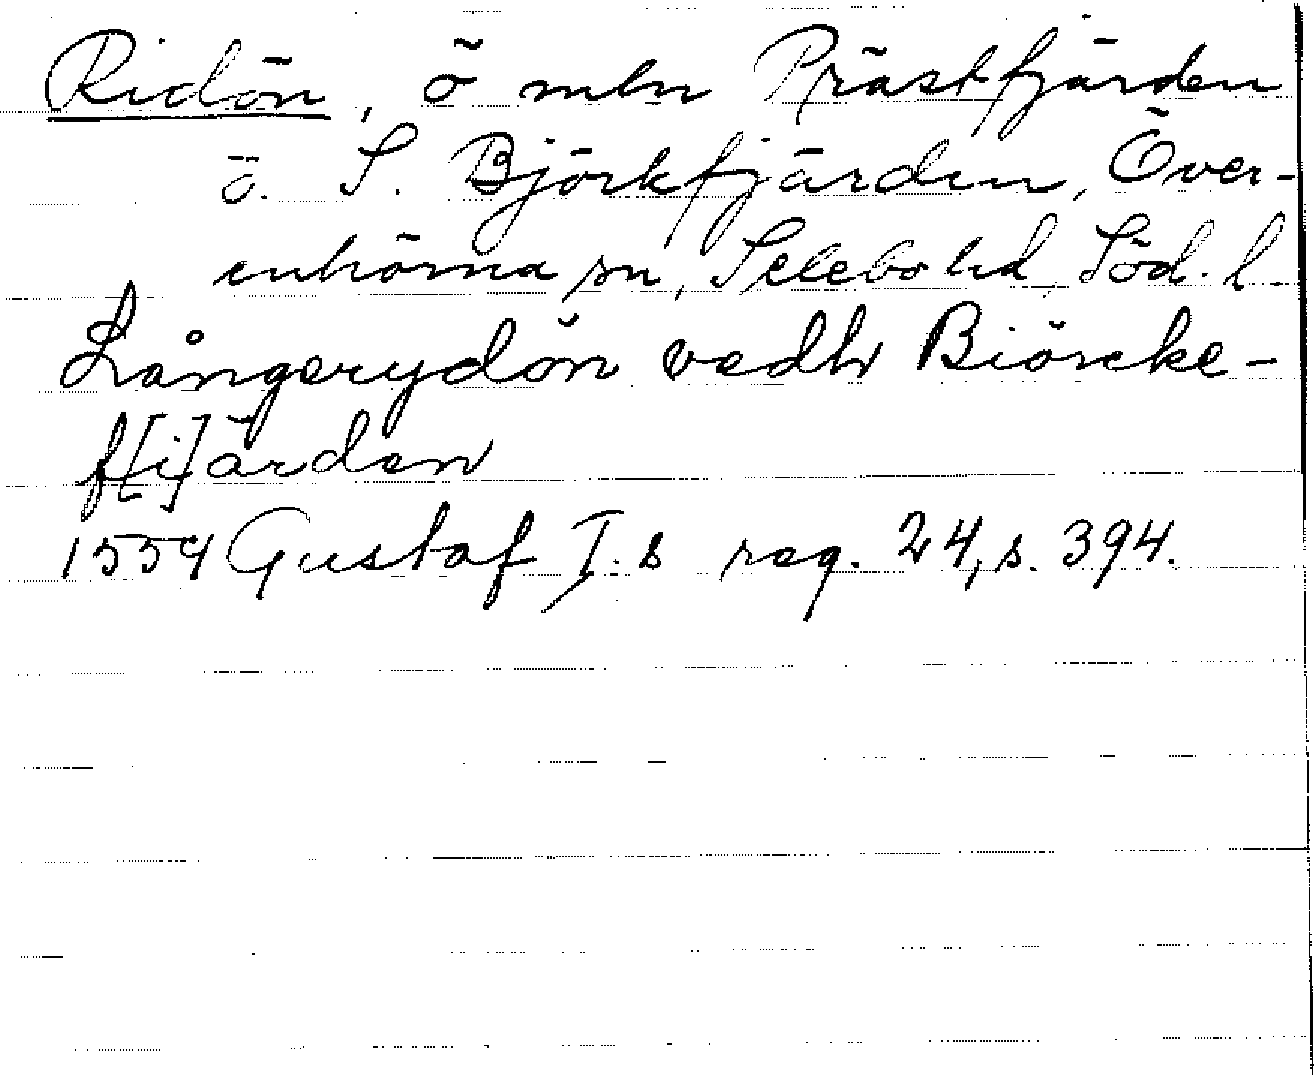 Ridön, ö mln Prästfjärden
o. S. Björkfjärden, Över-
enhörna sn, Selebo hd, Söd. l.
Långerydön vedh Biörcke-
f[i]ärden
1554 Gustaf I:s reg. 24, s. 394.